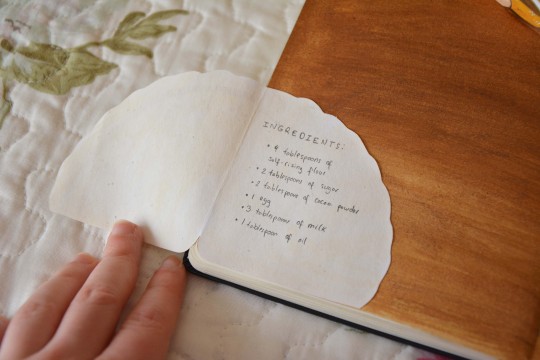 INGREDIENTS:
• 4 tablespoons of
self-rising flour
• 2 tablespoons of sugar
• 2 tablespoon of cocoa powder
• 1 egg
• 3 tablespoons of milk
• 1 tablespoon of oil